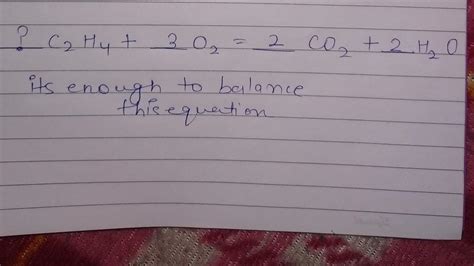 ? C2H4 + 3 O2 = 2 CO2 + 2 H2O
its enough to balance
this equation